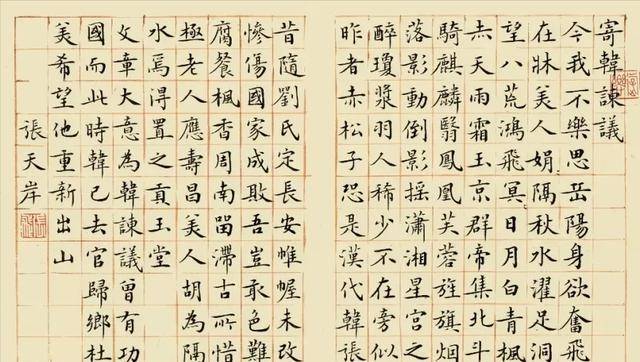 寄韓諫議
今我不樂思岳陽身欲奮飛
在牀美人娟隔秋水濯足洞
望八荒鴻飛冥日月白青楓
赤天雨霜玉京群帝集北斗
騎麒麟翳鳳凰芙蓉旌旗烟
落影動倒影摇瀟湘星宮之
醉瓊漿羽人稀少不在旁似
昨者赤松子恐是漢代韓張
昔隨劉氏定長安帷幄未改
慘傷國家成敗吾豈敢色難
腐餐楓香周南留滯古所惜
極老人應壽昌美人胡為隔
水焉得置之貢玉堂
文章大意為韓諫議曾有功
國而此時韓已去官歸鄉杜
美希望他重新出山
張天岸